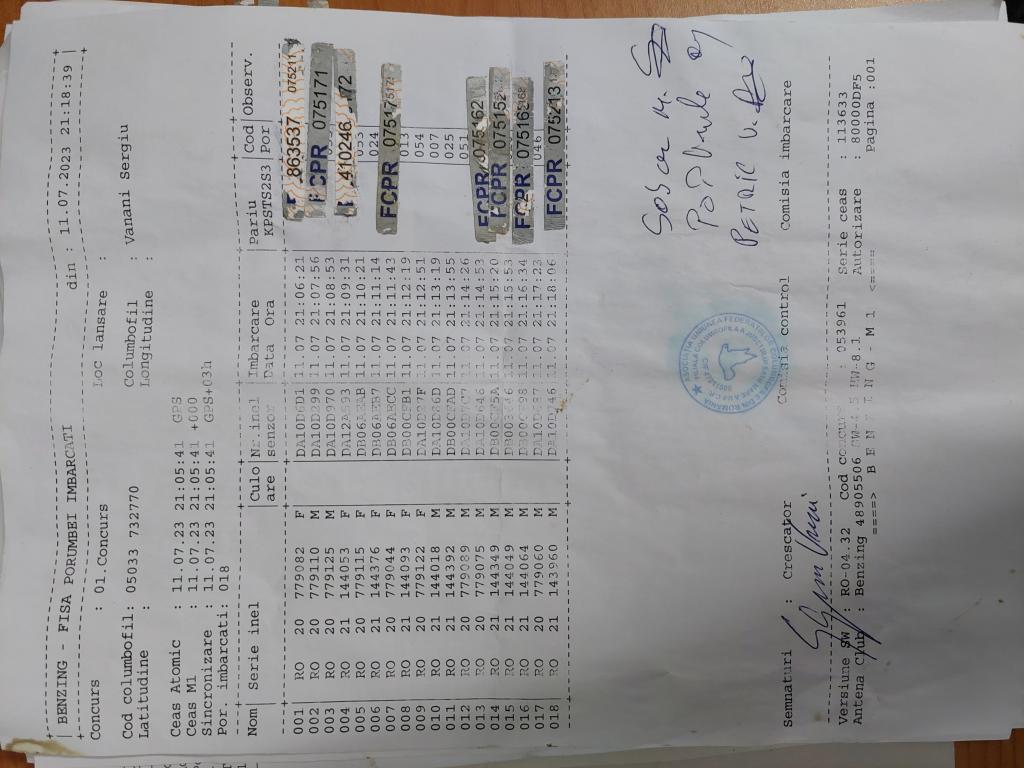 BENZING - FISA PORUMBEI IMBARCATI din : 11.07.2023 21:18:39
Concurs : 01.Concurs Loc lansare :
Cod columbofil: 05033 732770 Columbofil : Vanani Sergiu
Latitudine : Longitudine :
Ceas Atomic : 11.07.23 21:05:41 GPS
Ceas M1 : 11.07.23 21:05:41 +000
Sincronizare : 11.07.23 21:05:41 GPS+03h
Por. imbarcati: 018
Nom Serie inel Culo Nr.inel Imbarcare Pariu Cod Observ.
are senzor Data Ora KPSTS2S3 Por
001 RO 20 779082 F DA10D6D1 11.07 21:06:21 863537 075211
002 RO 20 779110 M DA10D299 11.07 21:07:56 FCPR 075171
003 RO 20 779125 M DA10D970 11.07 21:08:53
004 RO 21 144053 F DA12A593 11.07 21:09:31 410246 172
005 RO 20 779115 F 11.07 21:10:21 053
006 RO 21 144376 F 11.07 21:11:14 024
007 RO 20 779044 F 11.07 21:11:43 FCPR 07517
008 RO 21 144093 F 11.07 21:12:19 013
009 RO 20 779122 F 11.07 21:12:51 054
010 RO 21 144018 M 11.07 21:13:19 007
011 RO 21 144392 M 11.07 21:13:55 025
012 RO 20 779089 M 11.07 21:14:26 051
013 RO 20 779075 M 11.07 21:14:53 FCPR 075162
014 RO 21 144349 M 11.07 21:15:20 FCPR 075152
015 RO 21 144049 M 11.07 21:15:53
016 RO 21 144064 M 11.07 21:16:34 FCPR 075165
017 RO 20 779060 M 11.07 21:17:23 046
018 RO 21 143960 M 11.07 21:18:06 FCPR 075213
Semnaturi : Crescator Comisia control Comisia imbarcare
PETRIC V.
Versiune SW : RO-04.32 Cod concurs : 053961 Serie ceas : 113633
Antena Club : Benzing 48905506 HW-8.1 Autorizare : 80000DF5
====> B E N Z I N G - M 1 <==== Pagina :001